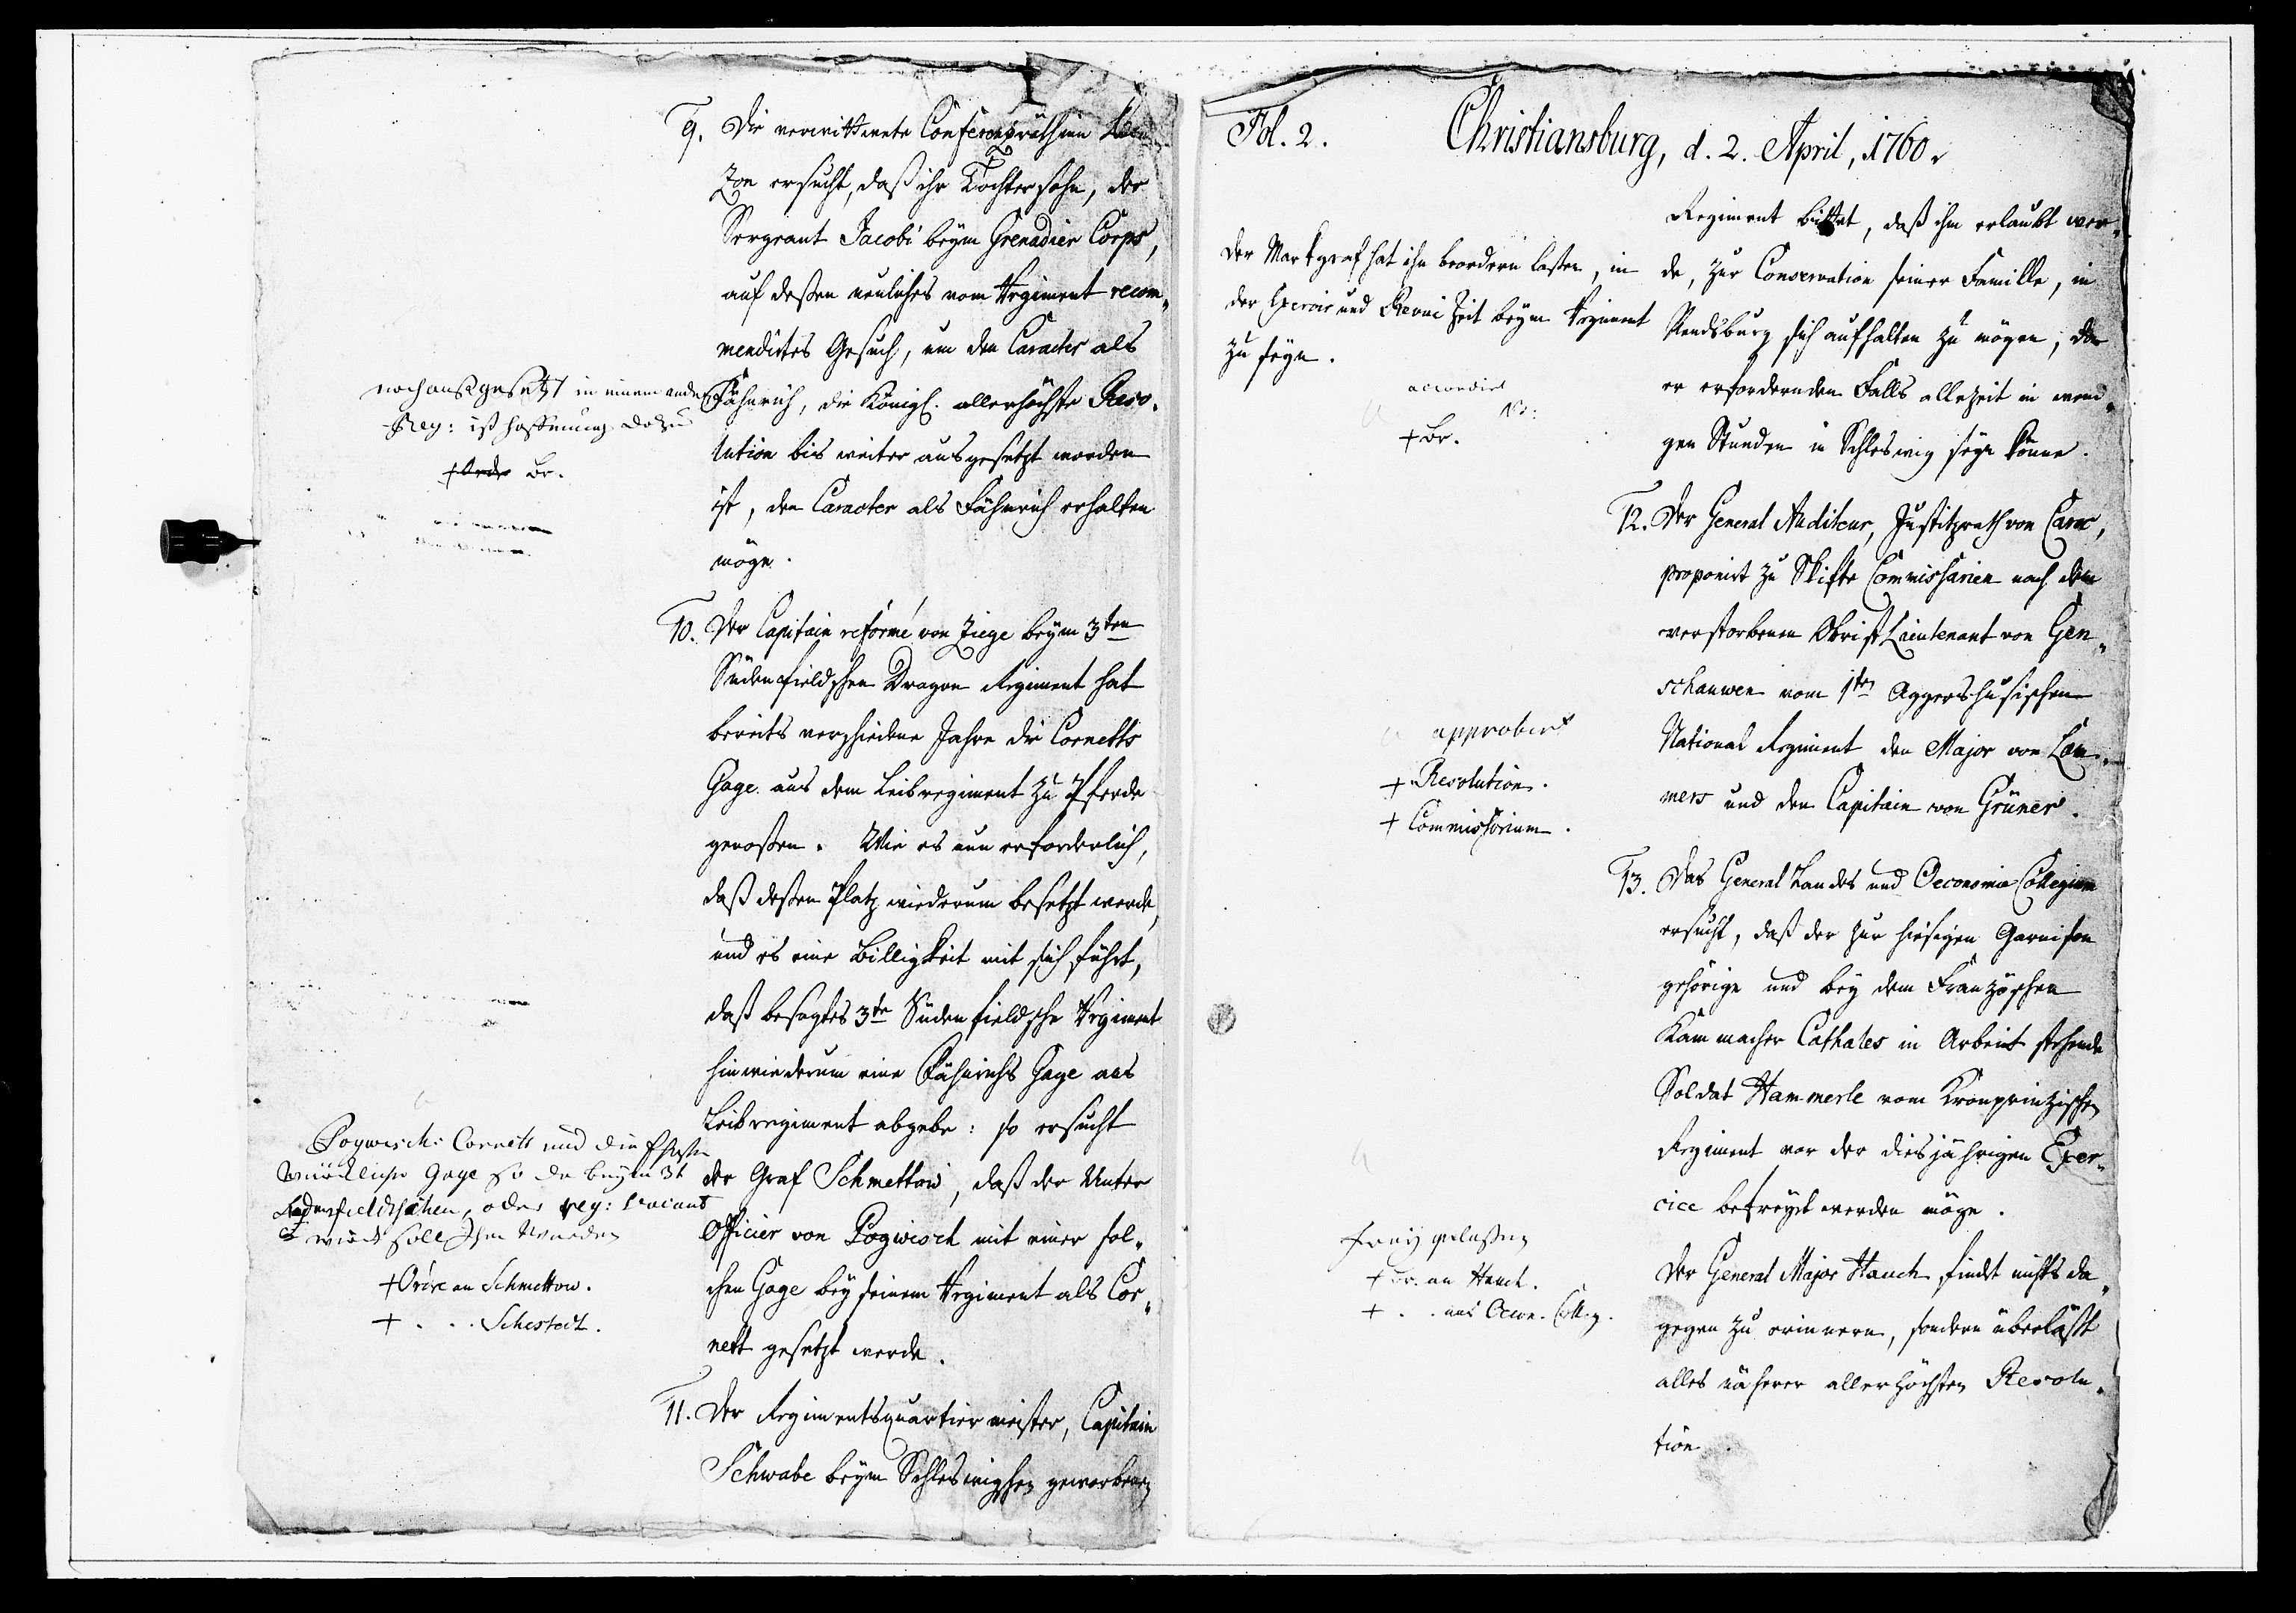 9. Die verwittwete Conferenzräthinn
zon ersucht, daß ihr Tochtersohn, der
Sergeant Jacobi beym Grenadier Corps,
auf deßen neuliches vom Regiment recom¬
mendirtes Gesuch, um den Caracter als
Fähnrich, die Königl. allerhöchste Reso¬
lution bis weiter ausgesetzt worden
ist, den Caracter als Fähnrich erhalten
möge.
noch ausgesetzt in einem ander
Reg: ist hoffnung dazu
+ Ordr Br.
10. Der Capitain reformé von Ziege beym 3ten
Südenfieldschen Dragon Regiment hat
bereits verschiedene Jahre die Cornetts
Gage aus dem Leibregiment zu Pferde
genoßen. Wie es nun erforderlich,
daß deßen Platz wiederum besetzt werde,
und es eine Billigkeit mit sich führt,
daß besagtes 3te Südenfieldsche Regiment
hinwiederum eine Fähnrichs Gage ans
Leibregiment abgebe: so ersucht
der Graf Schmettow, daß der Unter
Officier von Pogwisch mit einer sol¬
chen Gage bey seinem Regiment als Cor¬
nett gesetzt werde.
Pogwisch: Cornett und die Ehrste
würckliche Gage so da beym 3t
oder reg: vacant
wird soll Ihm werden
+ Ordre an Schmettow.
+ . . . Schestedt.
11. Der Regimentsquartiermeister, Capitain
Schwabe beym Schleswigschen geworbenen
Fol. 2.
Christiansburg, d. 2. April, 1760.
Regiment bittet, daß ihm erlaubt wer¬
de, zur Conservation seiner Famille, in
Rendsburg sich aufhalten zu mögen, da
er erfordernden Falls allezeit in weni¬
gen Stunden in Schleswig seyn könne.
Der Markgraf hat ihn beordern laßen, in
der Exercir und Revüe Zeit beym Regiment
zu seyn.
accordirt
NB:
+ Br.
12. Der General Auditeur, Justitzrath von Caroc,
proponirt zu Skifte Commissarien nach dem
verstorbenen Obrist Lieutenant von Gen¬
schauwen vom 1ten Aggershusischen
National Regiment den Major von Lem¬
mers und den Capitain von Grüner.
approbirt
+ Resolution.
+ Commissorium.
13. Das General Landes und Oeconomie Collegium
ersucht, daß der zur hiesigen Garnison
gehörige und bey dem Französchen
Kammacher Cathales in Arbeit stehende
Soldat Hammerle vom Kronprintzischen
Regiment vor der diesjährigen Exer¬
cice befreyet werden möge.
Der General Major Hauch findt nichts da¬
gegen zu erinnern, sondern überläßt
alles näherer allerhöchsten Resolu¬
tion.
frey gelaßen
+ Br. an Hauch.
+ . . ans Oecon. Colleg.